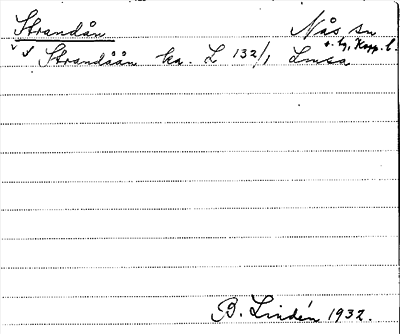 Strandån Nås sn
s. lg, Kopp. l.
v S Strandåån ka. L 132/1 Lmsa
B. Lindén 1932.